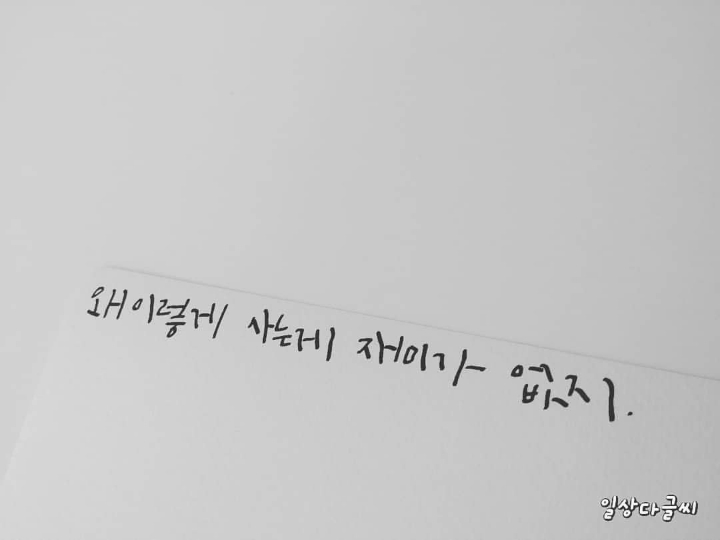 왜 이렇게 사는게 재미가 없지.
일상다글씨